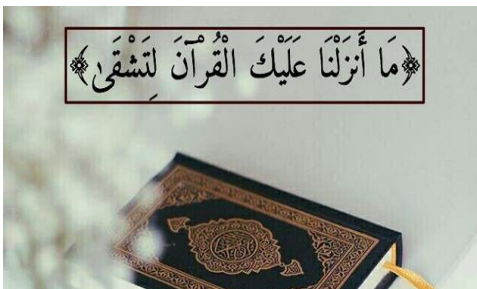 ﴿مَا أَنزَلْنَا عَلَيْكَ الْقُرْآنَ لِتَشْقَىٰ﴾